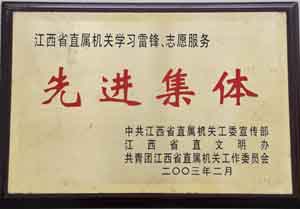 江西省直属机关学习雷锋、志愿服务
先进集体
中共江西省直属机关工委宣传部
江西省直文明办
共青团江西省直属机关工作委员会
二〇〇三年二月